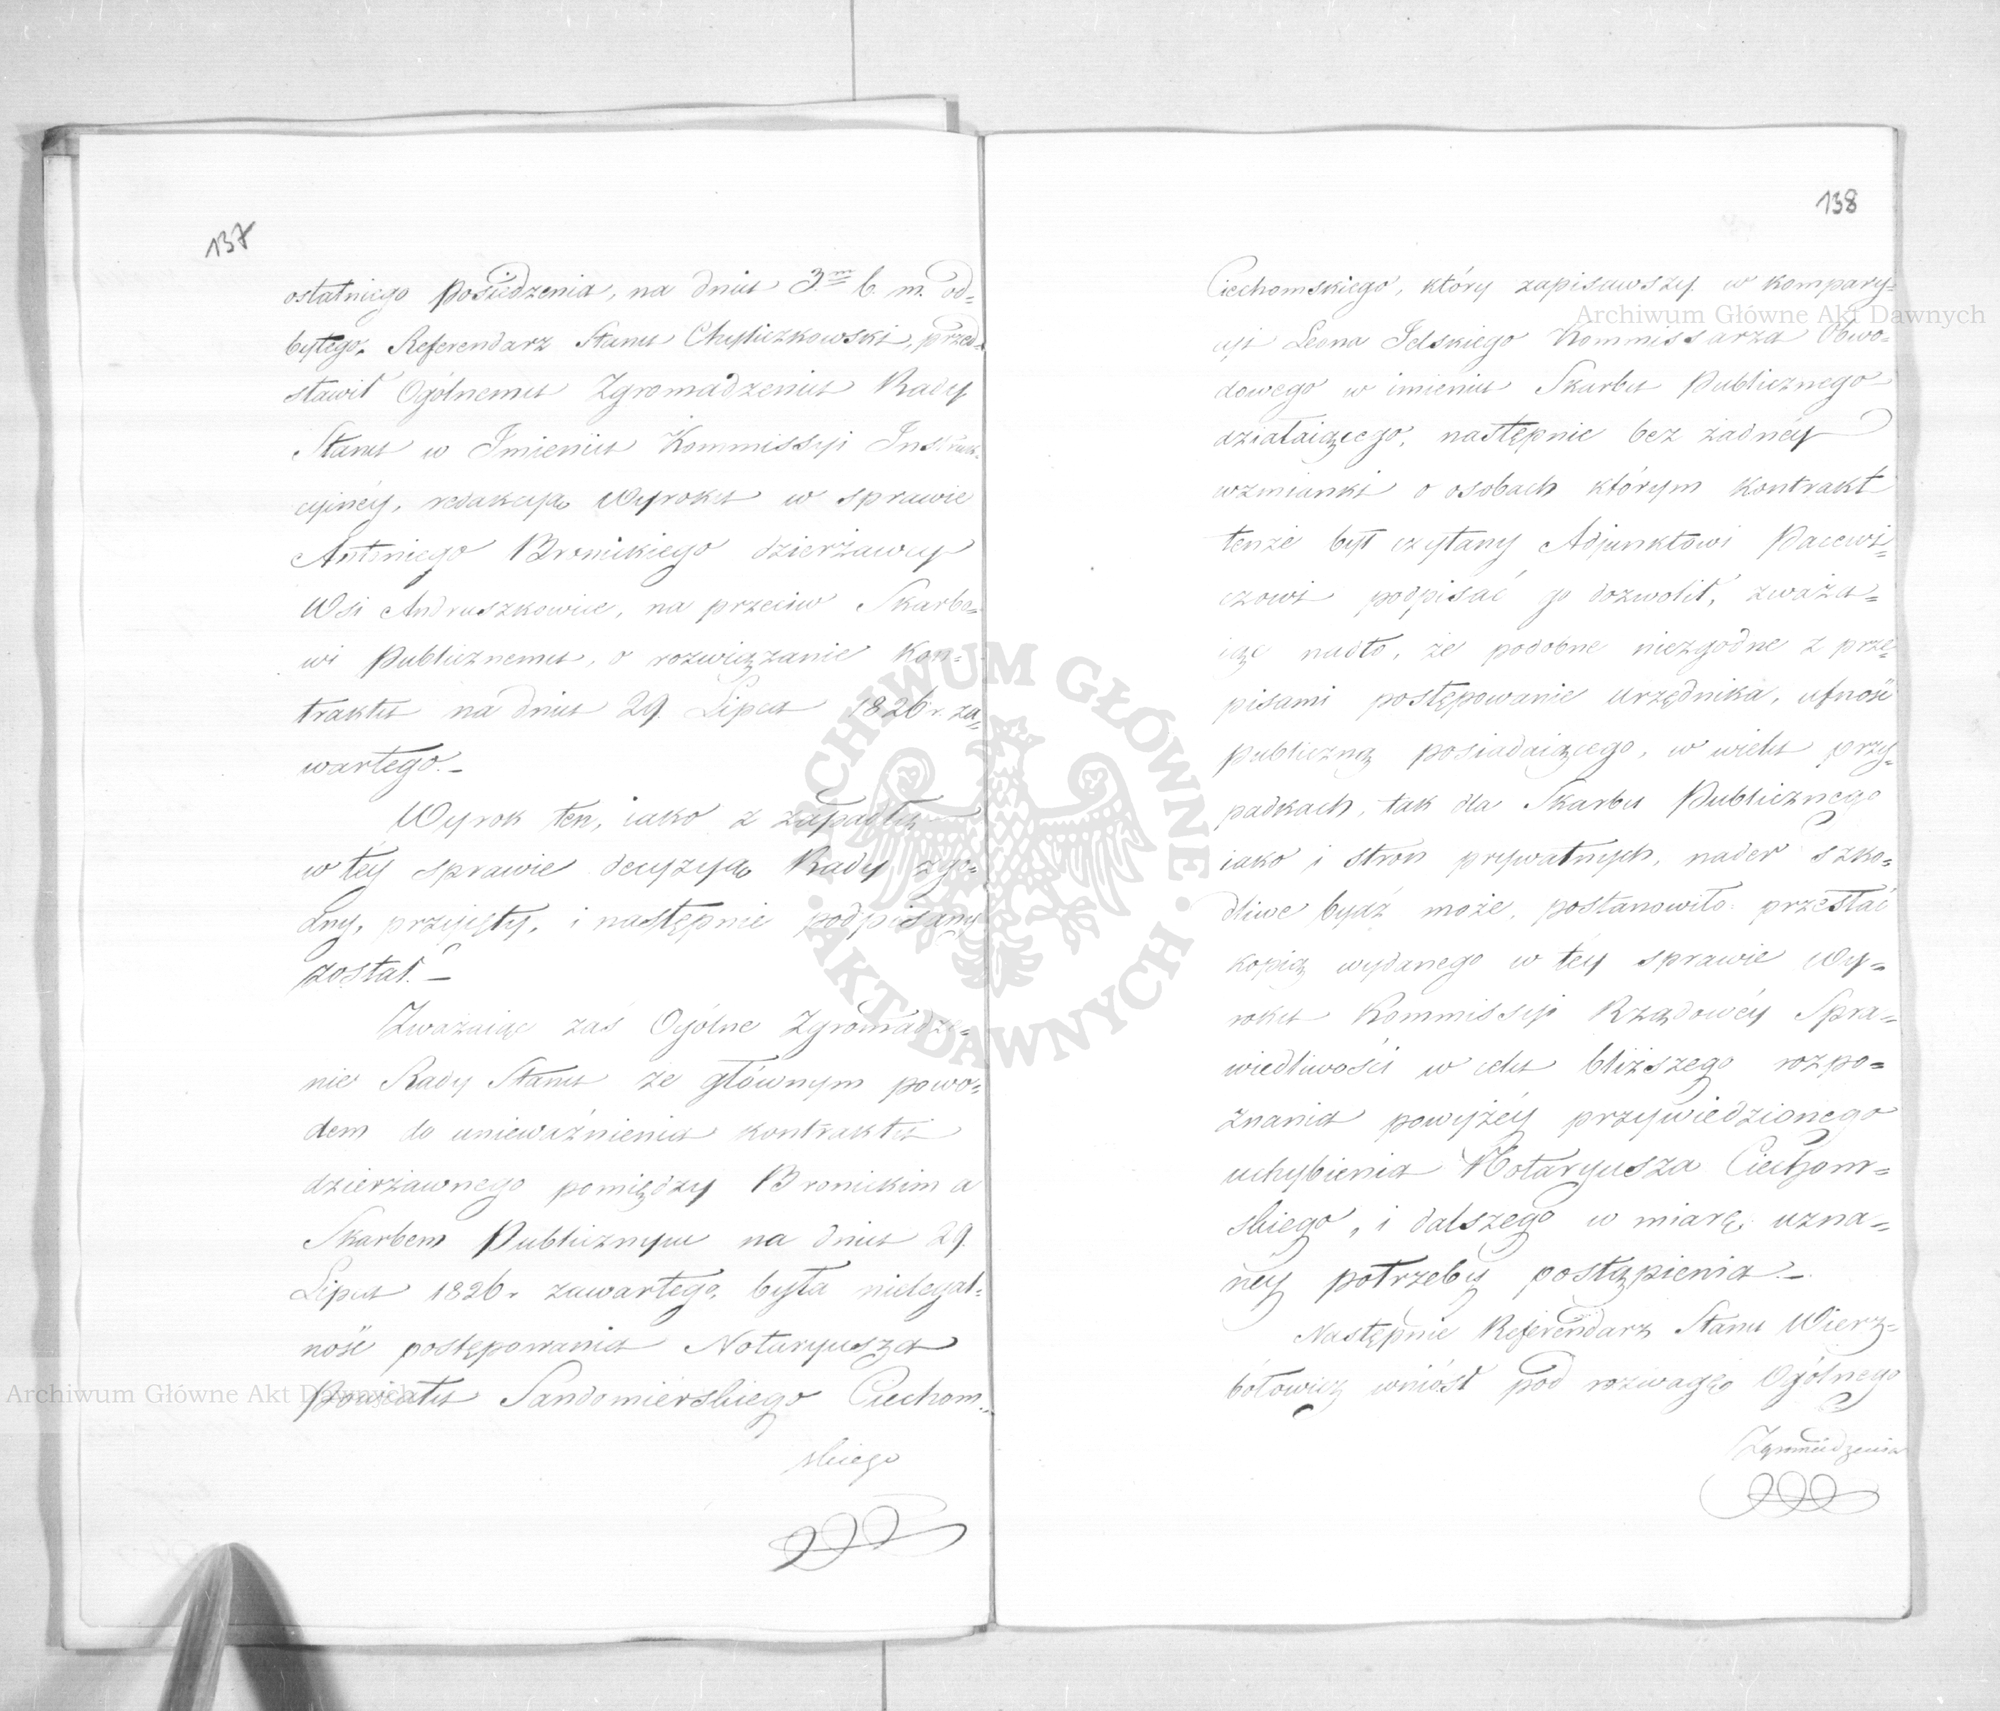 137
ostatniego Posiedzenia, na dniu 3.m b. m. od=
bytego. Referendarz Stanu Chyliczkowski, przed=
stawił Ogólnemu Zgromadzeniu Rady
Stanu w Imieniu Kommissyi Instruk=
cyinéy, redakcyą Wyroku w sprawie
Antoniego Bronickiego dzierżawcy
Wsi Andruszkowice, na przeciw Skarbo=
wi Publicznemu, o rozwiązanie kon=
traktu na dniu 29. Lipca 1826 r. za=
wartego._
Wyrok ten, iako z zapadłą
w téy sprawie decyzyą Rady zgo=
dny, przyięty, i następnie podpisany
został._
Zważaiąc zaś Ogólne Zgromadze=
nie Rady Stanu że głównym powo=
dem do unieważnienia kontraktu
dzierżawnego pomiędzy Bronickim a
Skarbem Publicznym na dniu 29.
Lipca 1826 r. zawartego, była nielegal=
ność postępowania Notaryusza
Powiatu Sandomiérskiego Ciechom=
skiego
138
Ciechomskiego, który zapisawszy w kompary=
cyi Leona Jelskiego Kommissarza Obwo=
dowego w imieniu Skarbu Publicznego
działaiącego, następnie bez żadnéy
wzmianki o osobach którym kontrakt
tenże był czytany Adjunktowi Pacewi=
czowi podpisać go dozwolił, zważa=
iąc nadto, że podobne niezgodne z prze=
pisami postępowanie urzędnika, ufność
publiczną posiadaiącego, w wielu przy=
padkach, tak dla Skarbu Publicznego
iako i stron prywatnych, nader szko=
dliwe bydź może, postanowiło przesłać
kopią wydanego w téy sprawie Wy=
roku Kommissyi Rządowéy Spra=
wiedliwości w celu bliższego rozpo=
znania powyżéy przywiedzionego
uchybienia Notaryusza Ciechom=
skiego, i dalszego w miarę uzna=
néy potrzeby postąpienia._
Następnie Referendarz Stanu Wierz=
bołowicz wniósł pod rozwagę Ogólnego
Zgromadzenia
Archiwum Główne Akt Dawnych
Archiwum Główne Akt Dawnych
ARCHIWUM GŁÓWNE · AKT DAWNYCH ·